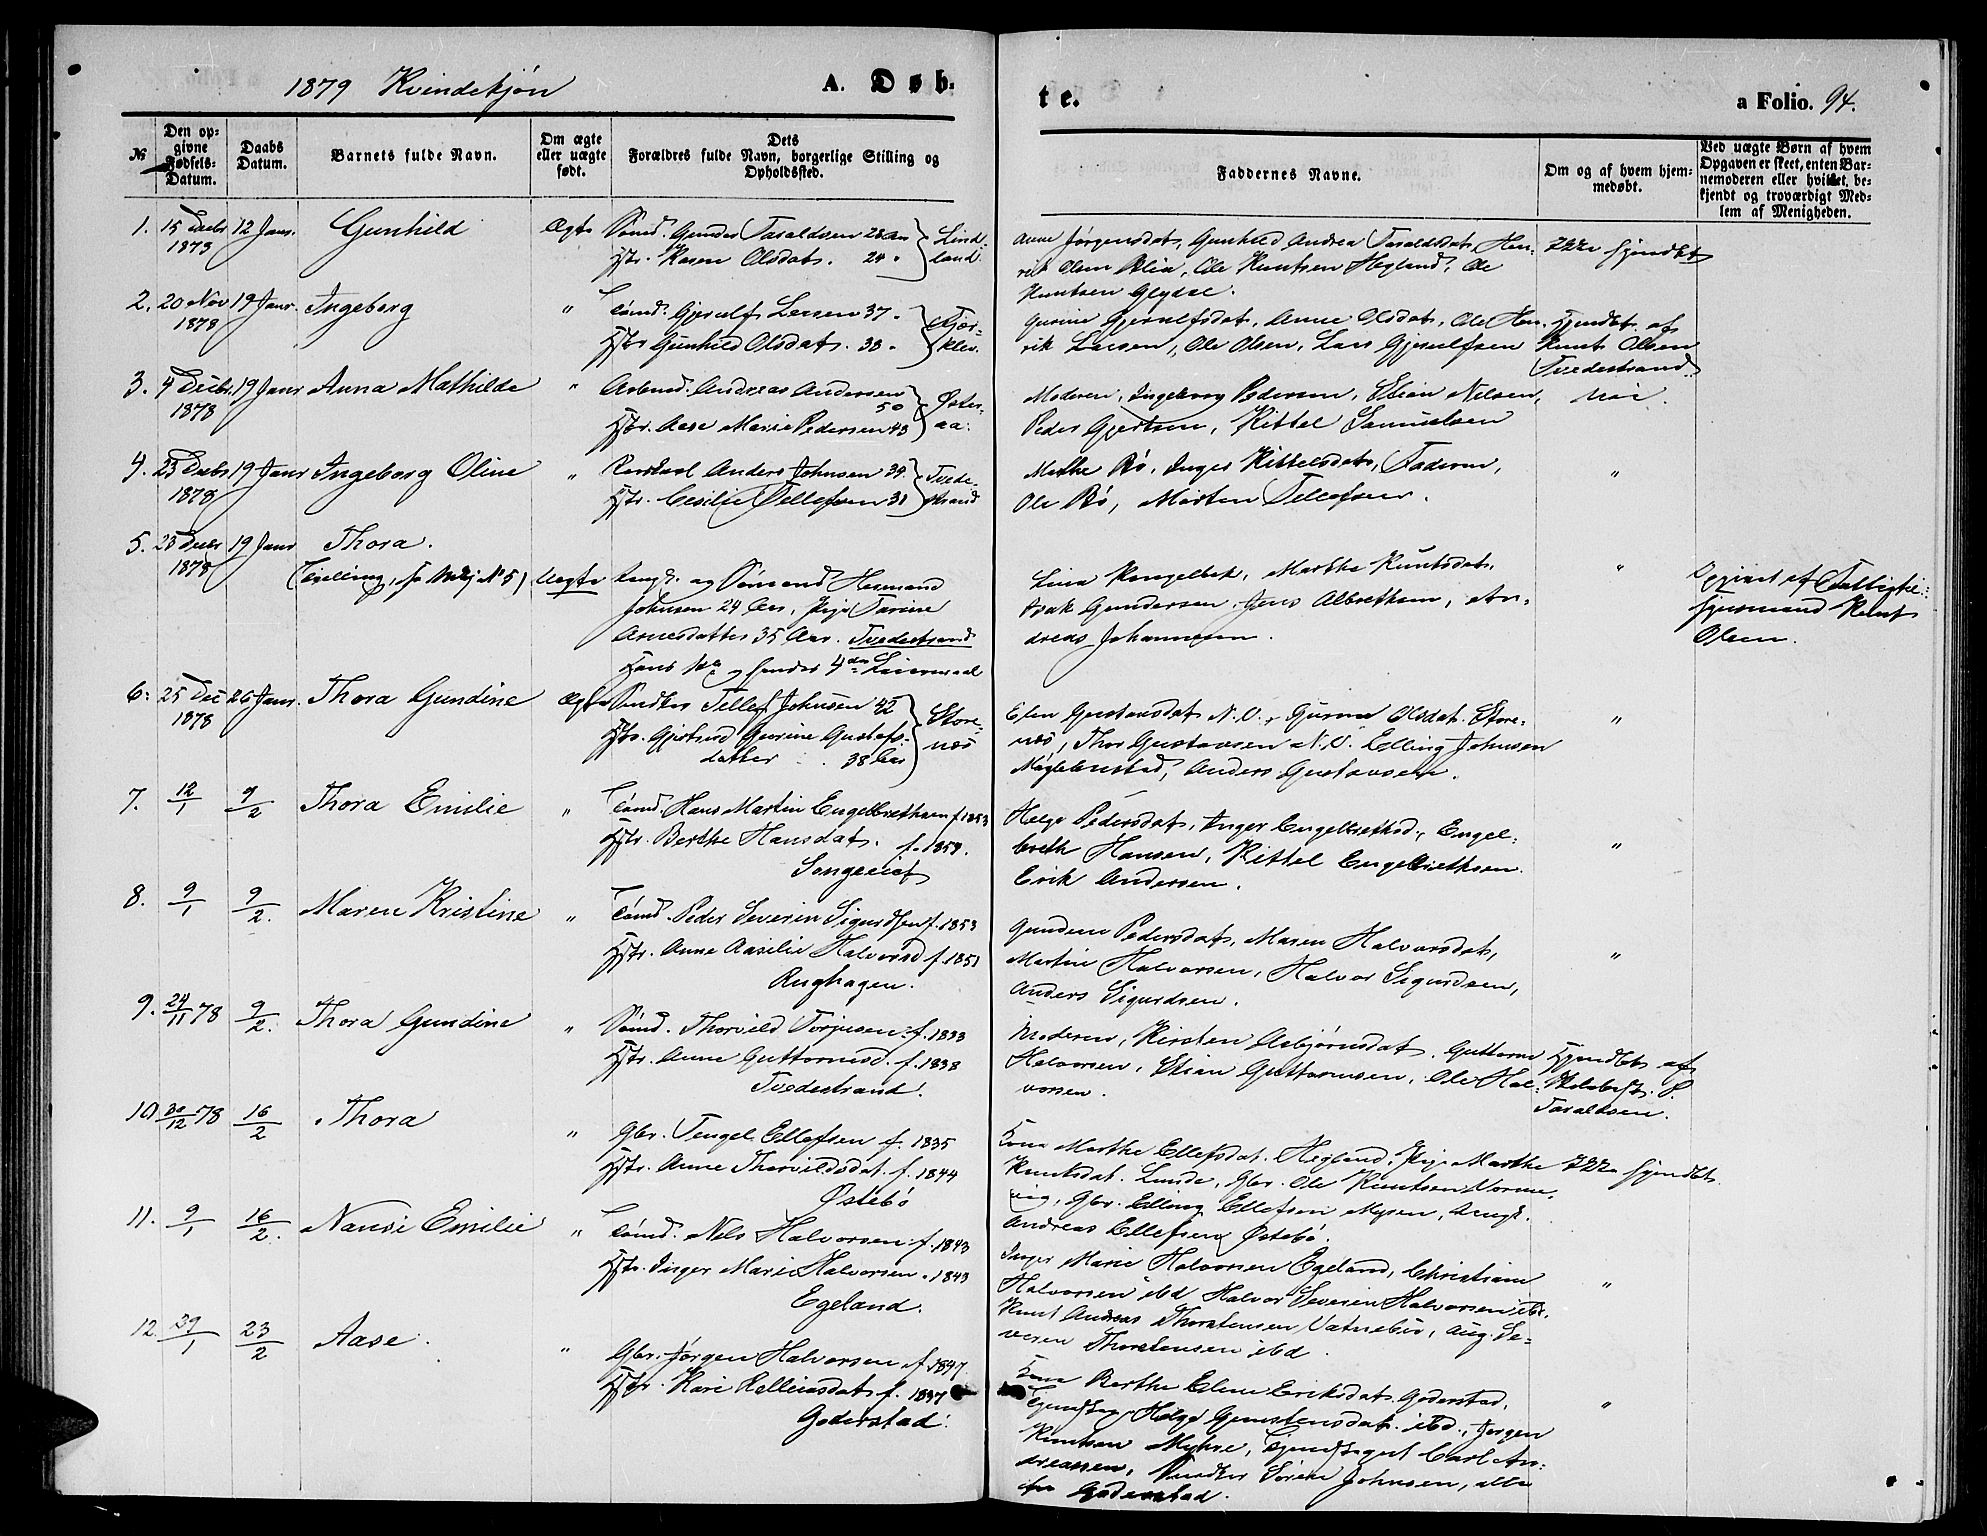 1879 Kvindekjøn
A. Døb-
te.
a Folio. 94.
№
Den op-
givne
Fødsels-
Datum.
Daabs
Datum.
Barnets fulde Navn.
Om ægte
eller uægte
født.
Dets
Forældres fulde Navn, borgerlige Stilling og
Opholdssted.
Faddernes Navne.
Om og af hvem hjem-
medøbt.
Ved uægte Børn af hvem
Opgaven er skeet, enten Bar-
nemoderen eller hvilket, be-
kjendt og troværdigt Med-
lem af Menigheden.
1. 15 Decbr 1878 12 Janr. Gunhild Ægte
Sømd. Gunder Taraldsen 28 Aar
Hstr. Karen Olsdat. 24 "
Lindland.
Anne Jørgensdat, Gunhild Andrea Taraldsdat, Hen-
rik Olsen Blia, Ole Knutsen Hegland, Ole
Knutsen
2. 20 Nov 1878 19 Janr. Ingeborg "
Tømd. Gjerulf Larsen 37 "
Hstr Gunhild Olsdat. 38 "
Gurine Gjerulfsdat, Anne Olsdat, Ole Hen-
rik Larsen, Ole Olsen, Lars Gjerulfsen
Hjmdbt. af
Knut Olsen
Tvedestrand.
3. 4 Decbr. 1878 19 Janr Anna Mathilde "
Arbmd. Andreas Andersen 50
Hstr. Aase Marie Pedersen 43
Østeraa.
Moderen, Ingeborg Pedersen, Elian Nelsen,
Peder Gjertsen, Kittel Samuelsen
Nei.
4. 23 Decbr 1878 19 Janr Ingeborg Oline "
Anders Johnsen 34
Hstr. Cesilie Tellefsen 31
Tvedestrand
Marthe Bø, Inger Kittelsdat, Faderen,
Ole Bø, Morten Tellefsen.
"
5. 23 Decbr 1878 19 Janr Thora.
Uægte
Ungk. og Sømand Hermand
Johnsen 24 Aar, Pige Tarine
Arnesdatter 35 Aar. Tvedestrand
Lina Mart­he Knutsdat,
Isak Gundersen, Jens Albrethsen, An-
dreas Johannesen.
"
Opgivet af Fattigtil-
synsmand Knut
Olsen.
6. 25 Dec 1878 26 Janr. Thora Gundine Ægte
Tellef Johnsen 42
Hstr. Gjertrud Gurine Gustafs-
datter 38 Aar
Storenæs
Elen Gustavsdat N.V., Gurine Olsdat. Store-
næs, Thor Gustavsen N.V. Elling Johnsen
Anders Gustavsen.
"
7. 12/1 9/2 Thora Emilie "
Tømd. Hans Martin Engelbrethsen f. 1853
Hstr. Berthe Hansdat. f. 1859.
Helge Pedersdat, Inger Engelbrethsd., Engel-
breth Hansen, Kittel Engelbrethsen.
Erik Andersen.
"
8. 9/1 9/2. Maren Kristine "
Tømd. Peder Severin Sigurdsen f. 1853
Hstr. Anne Aasilie Halvorsd f. 1851
Rughagen.
Gundine Pedersdat, Maren Halvorsdat,
Martin Halvorsen, Halvor Sigurdsen,
Anders Sigurdsen.
"
9. 24/11 78 9/2. Thora Gundine "
Sømd. Thorvild Torjusen. f. 1833
Hstr. Anne Guttormsd. f. 1838
Tvedestrand.
Moderen, Kirsten Asbjørnsdat. Guttorm
Halvorsen, Stian Guttormsen, Ole Hal-
vorsen.
Hjmdbt. af
Taraldsen.
10. 30/12 78 16/2 Thora "
Gbr. Tengel Ellefsen f. 1835
Hstr. Anne Thorvildsdat. f. 1844
Østebø
Kone Marthe Ellefsdat. Hegland, Pige Marthe
Knutsdat. Lunde, Gbr. Ole Knutsen
Gbr. Elling Ellefsen Myren, Ungk.
Andreas Ellefsen Østebø.
Ikke hjmdbt.
11. 9/1 16/2. Nansi Emilie "
Tømd. Nels Halvorsen f. 1843
Hstr. Inger Marie Halvorsen " 1843
Egeland.
Inger Marie Halvorsen Egeland, Christiane
Halvorsen ibd Halvor Severin Halvorsen ibd.
Knut Andreas Thorstensen Vatnebu, Aug. Se-
veren Thorstensen ibd.
"
12. 29/1 23/2 Aase. "
Gbr. Jørgen Halvorsen f. 1847
Hstr. Kari Kelleiasdat f. 1837
Goderstad.
Kone Berthe Elene Eriksdat. Goderstad,
Helge Gunstensdat. ibd., Jørgen
Knutsen Myhre, Carl An-
dreassen, Søren Johnsen, alle
fra Goderstad.
"